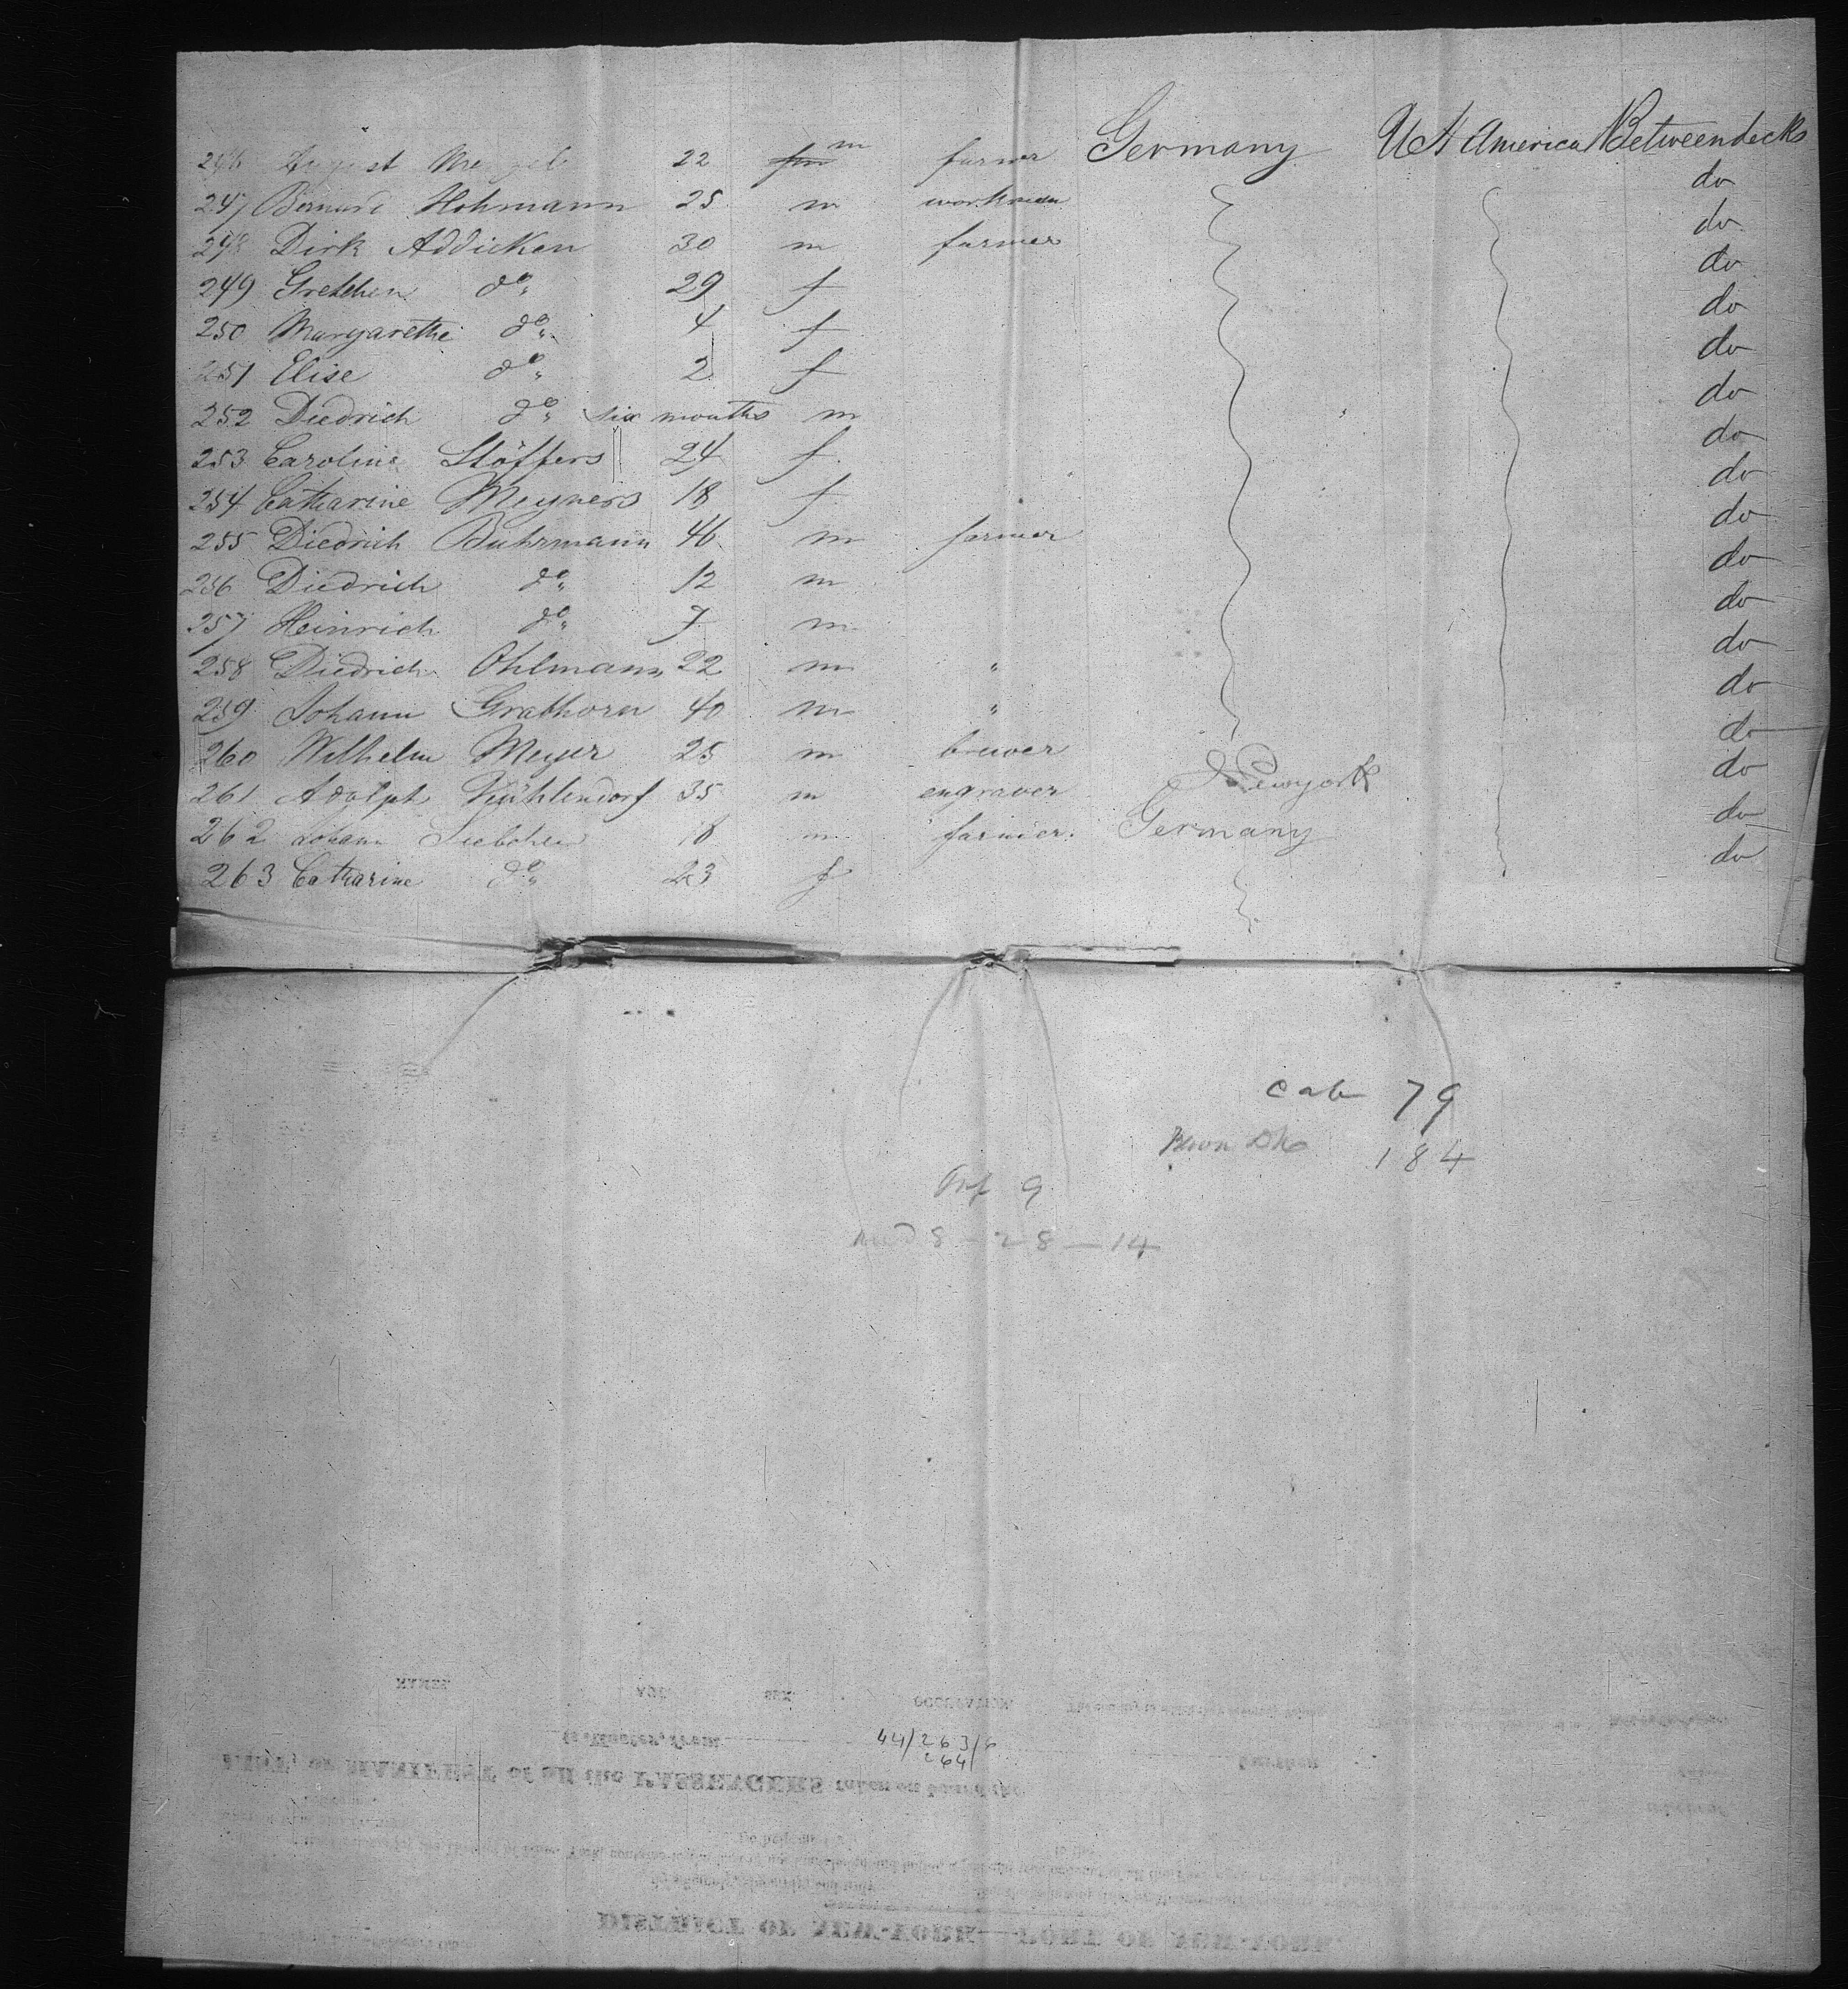 246 August 22 m farmer Germany U S America Betweendecks
247 Bernard Hohmann 25 m workman do
248 Dirk Addicken 30 m farmer do
249 Gretchen do 29 f do
250 Margarethe do 4 f do
251 Elise do 2 f do
252 Diedrich do six months m do
253 Caroline Stöffers 24 f do
254 Catharine Meyners 18 f do
255 Diedrich Buhrmann 46 m farmer do
256 Diedrich do 12 m do
257 Heinrich do 7 m do
258 Diedrich Ohlmann 22 m " do
259 Johann Grathorn 40 m " do
260 Wilhelm Meyer 25 m brewer do
261 Adolph 35 m engraver Newyork do
262 Johann 18 m farmer Germany do
263 Catharine do 23 f do
cab 79
184
Inf 9
8-28-14
NAMES AGE SEX OCCUPATION
is Master, from
44/263/6
264/
burthen
LIST, OR MANIFEST of all the PASSENGERS taken on board the
DISTRICT OF NEW-YORK—PORT OF NEW-YORK